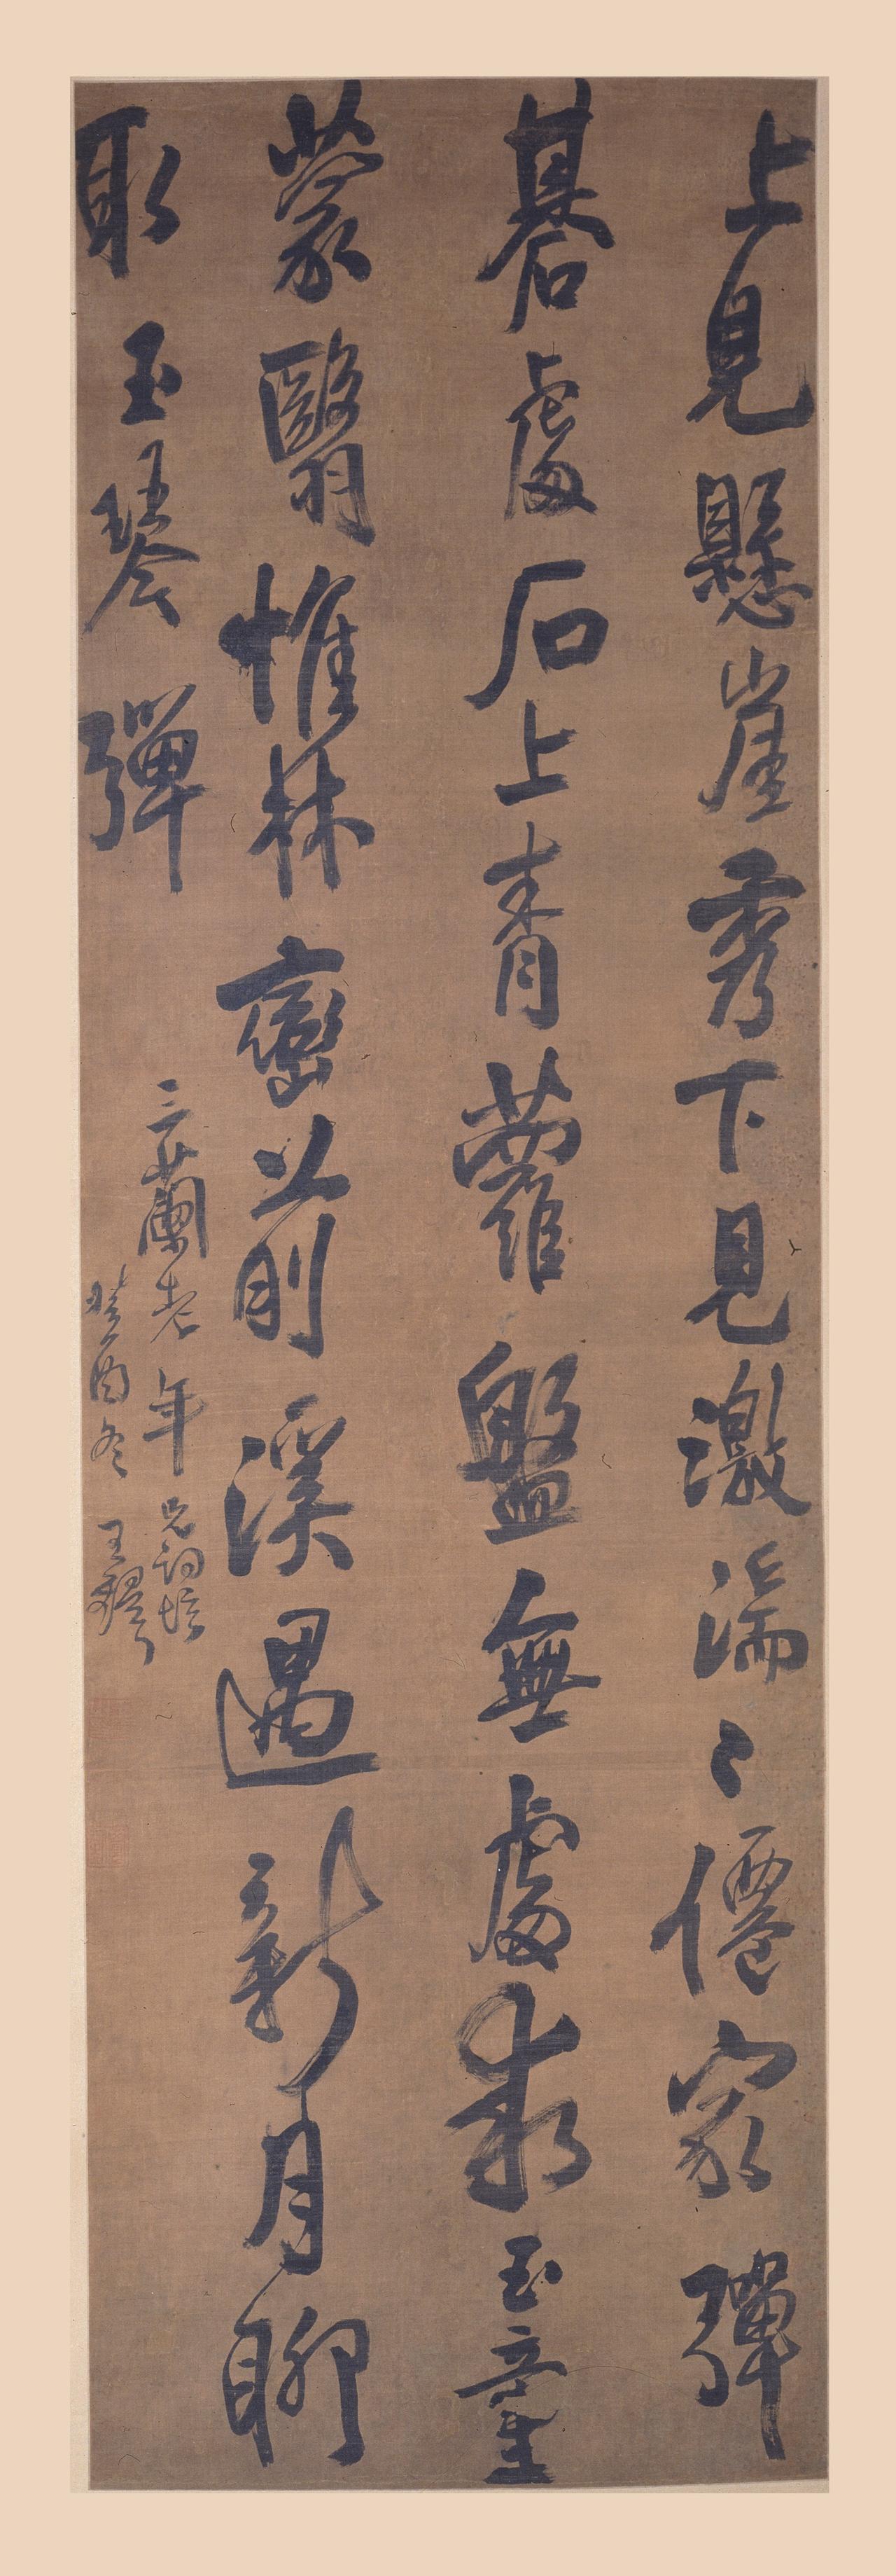 上見懸崖秀下見激湍〻僊家彈
碁處石上青蘿盤無處求玉童
蒙翳惟林巒前溪遇新月聊
取玉琴彈
三蘭老年兄詞壇
癸酉冬王鐸